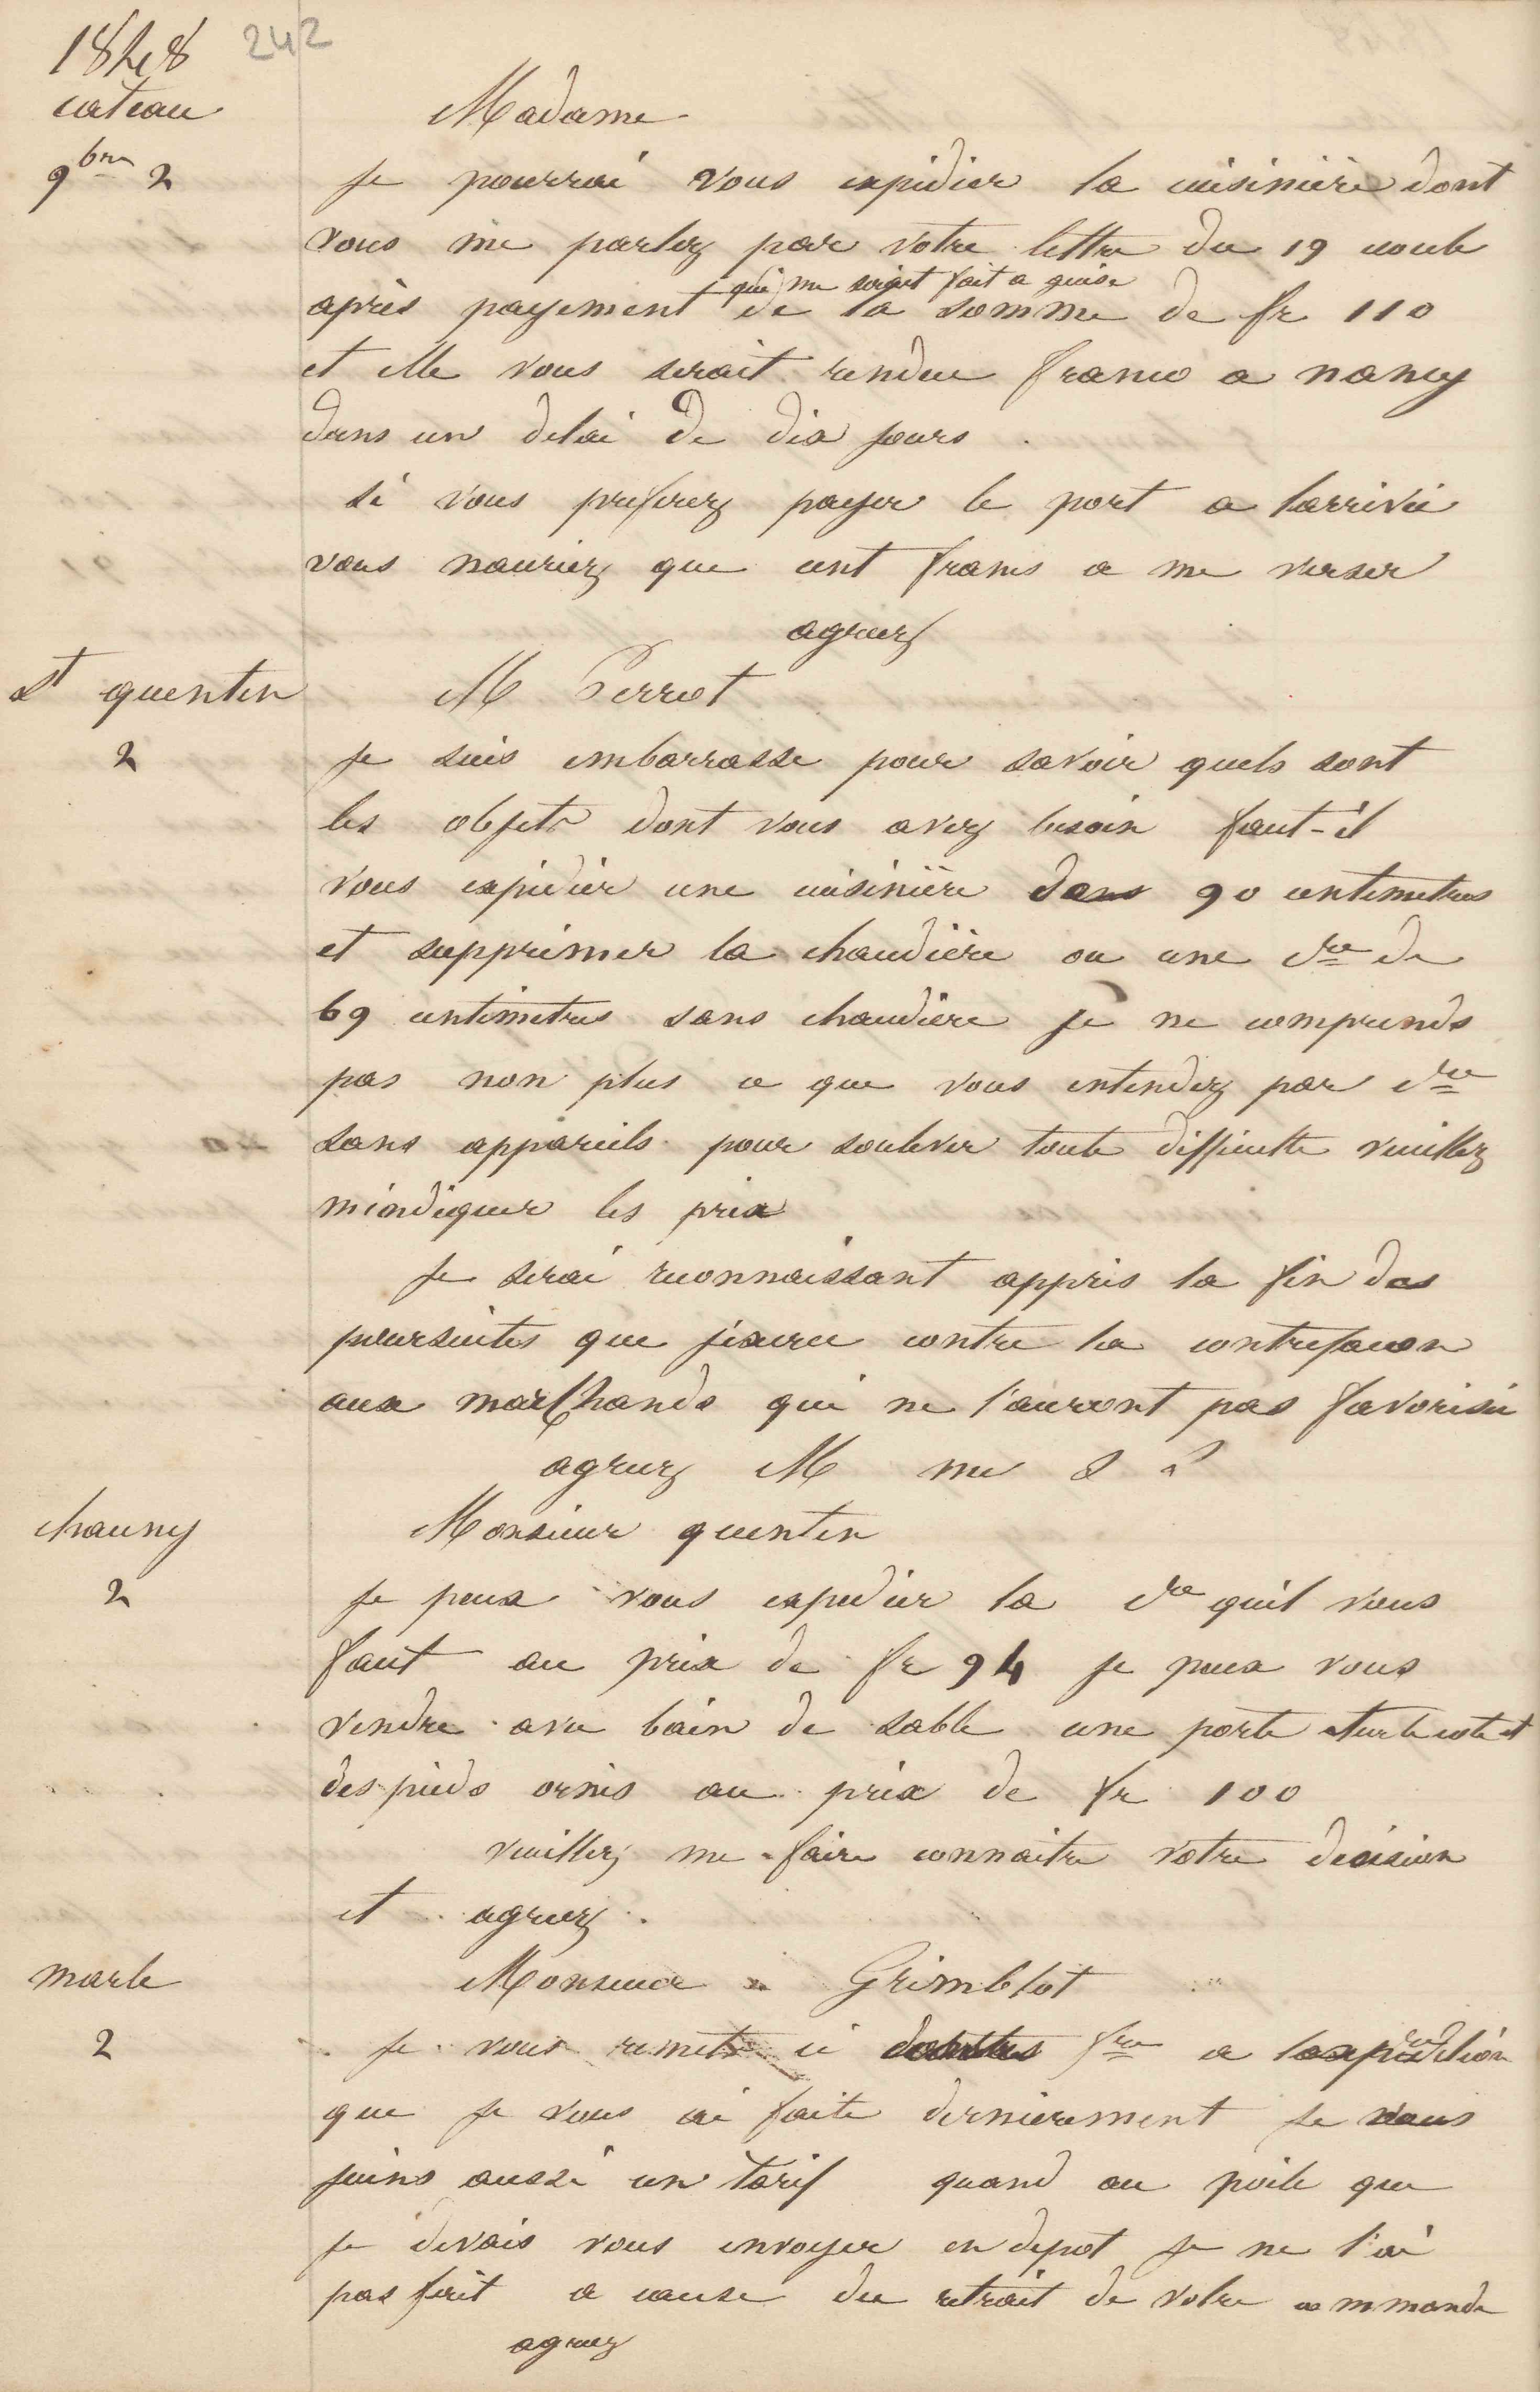 1848 242
cateau
9bre 2
Madame
Je pourrai vous expédier la cuisinière dont
vous me parlez par votre lettre du 19 coule
qui me soient fait a guise
après payement de la somme de fr 110
et elle vous serait rendue franco a nancy
dans un delai de dix jours.
si vous preferez payer le port a larrivée
vous nauriez que cent francs a me verser
agreez
St quentin
M Perrot
2
Je suis embarrasse pour savoir quels sont
les objets dont vous avez besoin faut-il
vous expédier une cuisinière dans 90 centimetres
et supprimer la chaudière ou une dre de
69 centimetres sans chaudière je ne comprends
pas non plus ce que vous entendez par dre
sans appareils pour soulever toute difficulte veuillez
mindiquer les prix
Je serai reconnaissant apprès la fin des
poursuites que jexerce contre la contrefacon
aux marchands qui ne l'auront pas favorisée
agreez M me S
chauny
Monsieur quentin
2
Je peux vous expedier la dre quil vous
faut au prix de fr 94 je peux vous
vendre avec bain de sable une porte sur le coté et
des pieds ornés au prix de fr 100
veuillez me faire connaitre votre decision
et agreez.
marle
Monsieur Grimblot
2
Je vous remets ci fre a lexpédition
que je vous ai faite dernierement je vous
joins aussi un tarif quand au poële que
je devais vous envoyer en depot je ne l'ai
pas fait a cause du retrait de votre commande
agreez